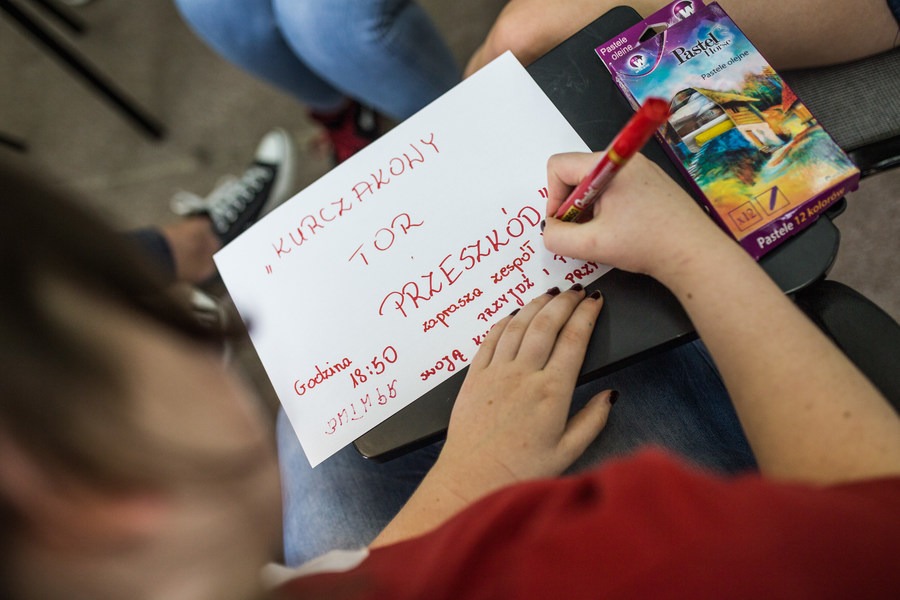 „KURCZAKOWY
TOR
PRZESZKÓD"
zaprasza zespół
PRZYJDŹ I
swoją
PRZY
Godzina
18:50
Pastele
olejne
Pastel
Horse
Pastele olejne
x12
Pastele 12 kolorów